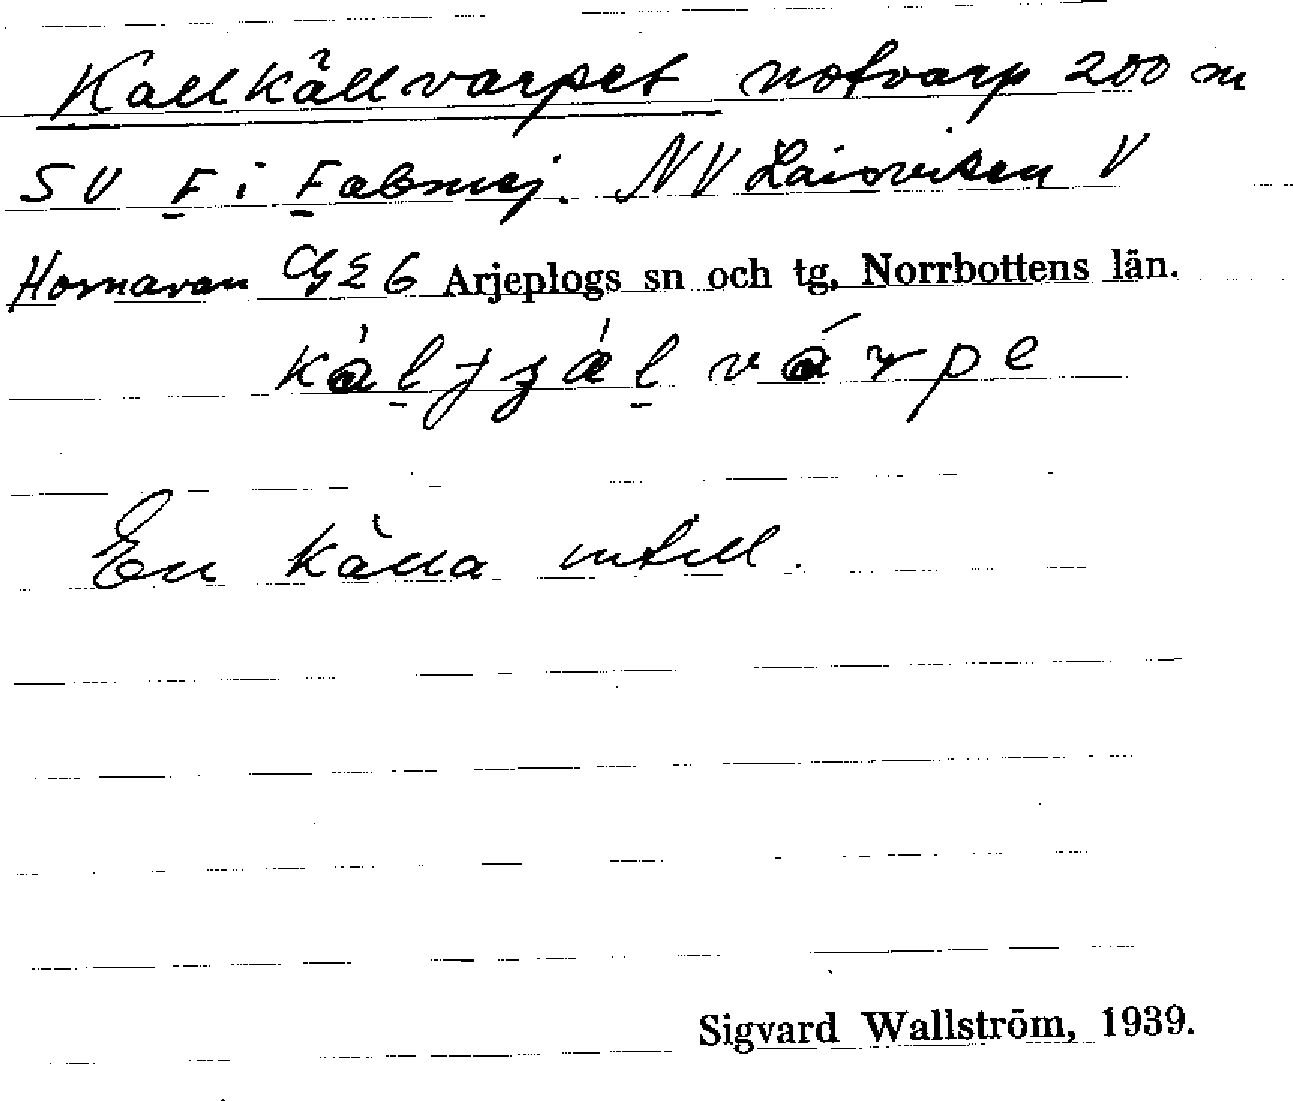 Kallkällvarpet notvarp 200 m
SV F i Fabmej. NV Laisviken V
Hornavan G26 Arjeplogs sn och tg, Norrbottens län.
En källa intill.
Sigvard Wallström, 1939.